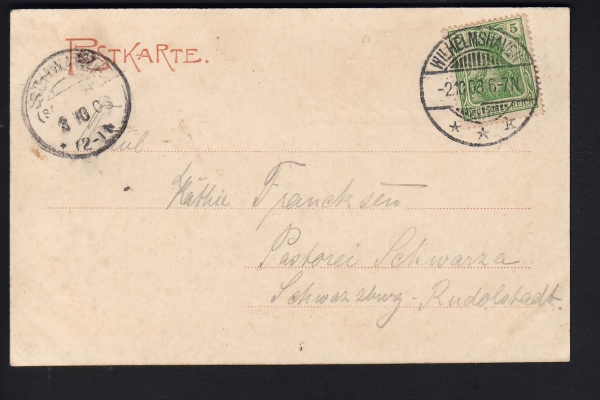 POSTKARTE.
WILHELMSHAVEN
-2.10.03 6-7N
* * k
5
DEUTSCHES REICH
SCHWARZA
3 10 03
* 12-1N
Fräul
Käthie Francksen
Pastorei Schwarza
Schwarzburg-Rudolstadt.